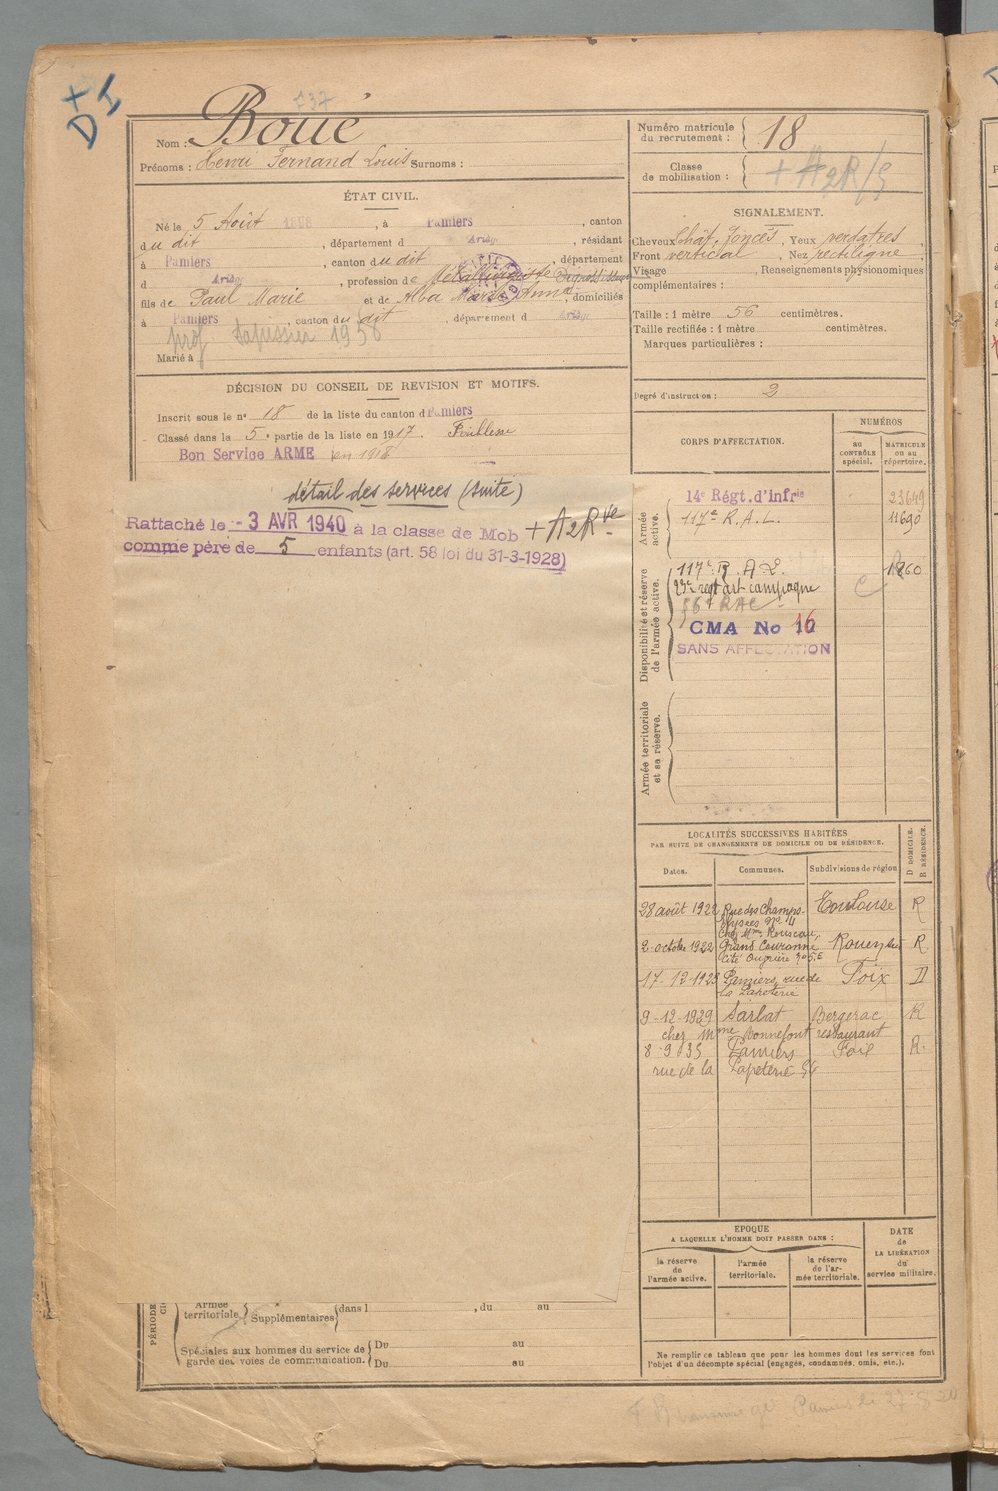 737
Nom : Boué
Prénoms : Henri Fernand Louis Surnoms :
Numéro matricule du recrutement : 18
Classe de mobilisation : + A2R/5
ÉTAT CIVIL.
Né le 5 Août 1898, à Pamiers, canton
du dit, département d Ariège, résidant
à Pamiers, canton du dit, département
d Ariège, profession de Métallurgiste
fils de Paul Marie et de Alba Marie Anna, domiciliés
à Pamiers, canton du dit, département d Ariège
prof. tapissier 1938
Marié à
SIGNALEMENT.
Cheveux Chât. foncés, Yeux verdâtres,
Front vertical, Nez rectiligne,
Visage , Renseignements physionomiques
complémentaires :
Taille : 1 mètre 56 centimètres.
Taille rectifiée : 1 mètre centimètres.
Marques particulières :
Degré d'instruction : 2
DÉCISION DU CONSEIL DE REVISION ET MOTIFS.
Inscrit sous le n° 18 de la liste du canton d Pamiers
Classé dans la 5e partie de la liste en 1917. Faiblesse
Bon Service ARMÉ en 1918
détail des services (suite)
Rattaché le - 3 AVR 1940 à la classe de Mob + A2Rve
comme père de 5 enfants (art. 58 loi du 31-3-1928)
CORPS D'AFFECTATION.
NUMÉROS
au CONTRÔLE spécial.
MATRICULE ou au répertoire.
Armée active.
14e Régt. d'Infrie 23649
117e R.A.L. 11690
Disponibilité et réserve de l'armée active.
117e R.A.L. 1860
23e regt art campagne
56e RAC
CMA No 16
SANS AFFECTATION
Armée territoriale et sa réserve.
LOCALITÉS SUCCESSIVES HABITÉES
PAR SUITE DE CHANGEMENTS DE DOMICILE OU DE RÉSIDENCE.
Dates. Communes. Subdivisions de région D DOMICILE. R RÉSIDENCE.
28 août 1922 Rue des Champs- Toulouse R
Elysées no. 4
chez Mme Rousseau
2 octobre 1922 Grand Couronne Rouen R.
Cité Ouvrière
17-12-1923 Pamiers, rue de Foix D
la Papeterie
9-12-1929 Sarlat Bergerac R
chez Mme Bonnefont restaurant
8-9-35 Pamiers Foix R.
rue de la Papeterie
EPOQUE
A LAQUELLE L'HOMME DOIT PASSER DANS :
la réserve de l'armée active.
l'armée territoriale.
la réserve de l'armée territoriale.
DATE de LA LIBÉRATION du service militaire.
PÉRIODE
Armée territoriale Supplémentaires dans l , du au
Spéciales aux hommes du service de garde des voies de communication. Du au
Du au
Ne remplir ce tableau que pour les hommes dont les services font
l'objet d'un décompte spécial (engagés, condamnés, omis, etc.).